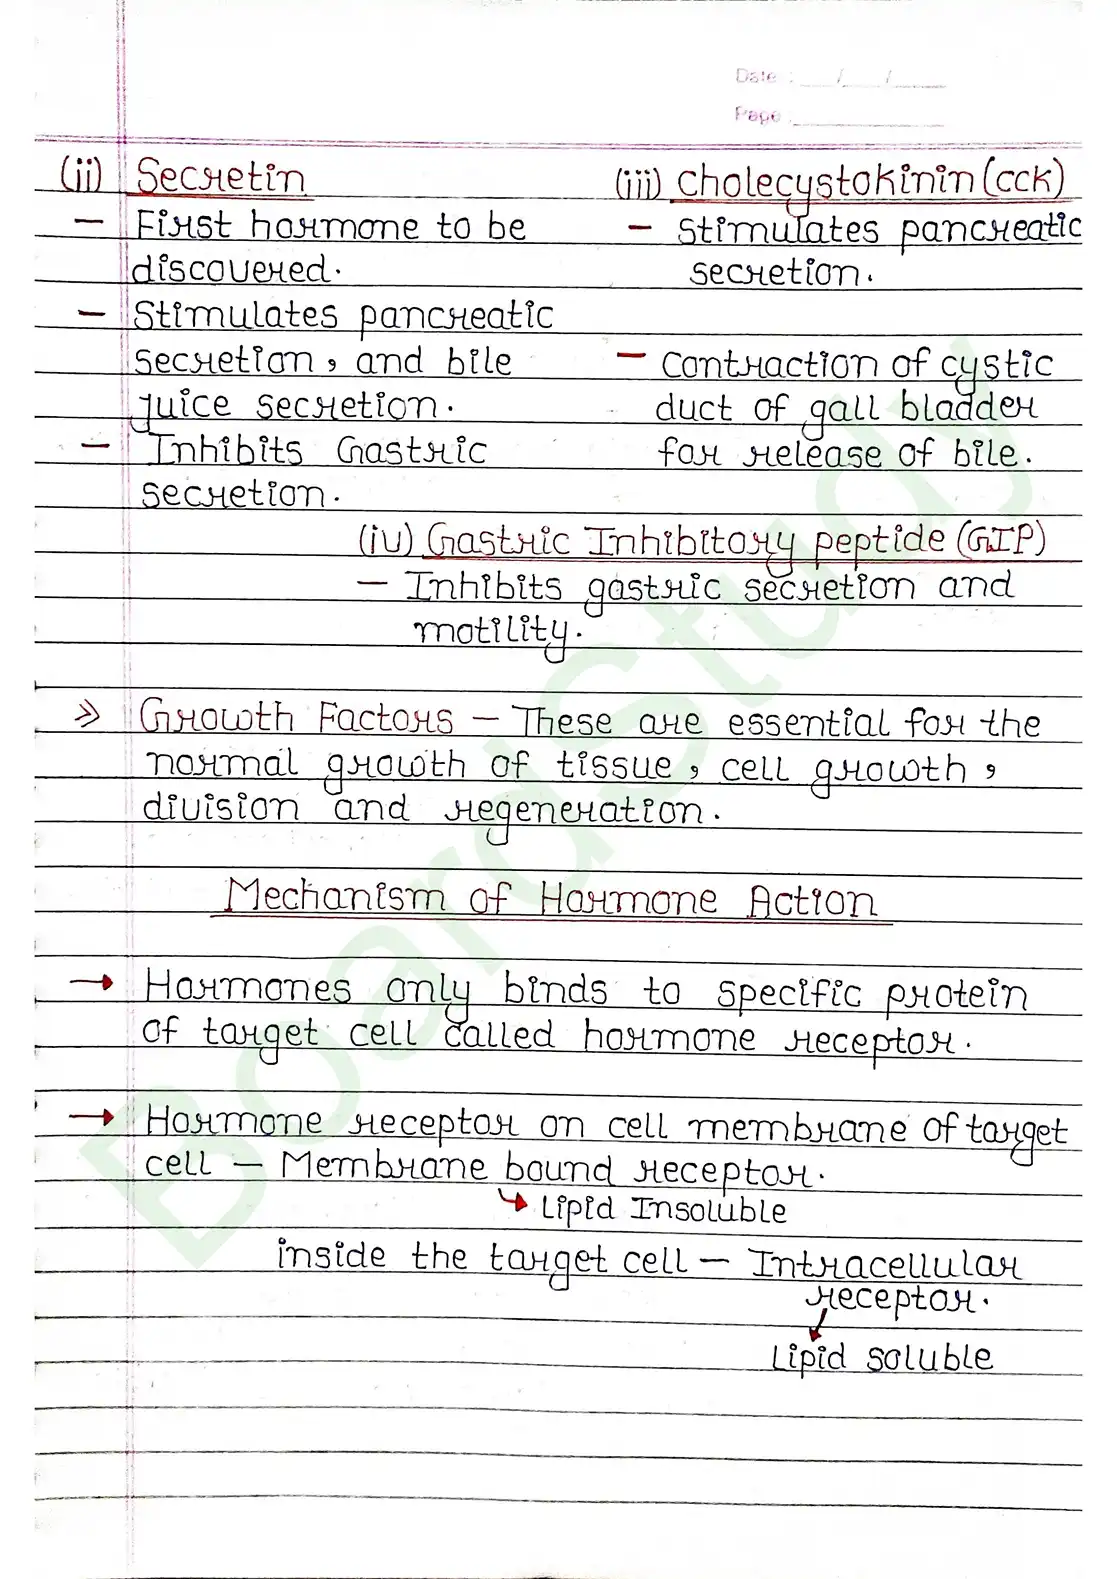 Date : ___/___/___
Page : ___
(ii) Secretin
- First hormone to be
discovered.
- Stimulates pancreatic
secretion, and bile
juice secretion.
- Inhibits Gastric
secretion.
(iii) Cholecystokinin (CCK)
- Stimulates pancreatic
secretion.
- Contraction of cystic
duct of gall bladder
for release of bile.
(iv) Gastric Inhibitory peptide (GIP)
- Inhibits gastric secretion and
motility.
» Growth Factors - These are essential for the
normal growth of tissue, cell growth,
division and regeneration.
Mechanism of Hormone Action
→ Hormones only binds to specific protein
of target cell called hormone receptor.
→ Hormone receptor on cell membrane of target
cell - Membrane bound receptor.
↳ Lipid Insoluble
inside the target cell - Intracellular
receptor.
↓
Lipid soluble
BoardStudy